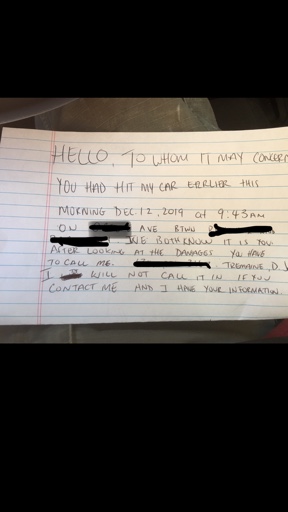 HELLO, TO WHOM IT MAY CONCERN
YOU HAD HIT MY CAR EARLIER THIS
MORNING DEC 12, 2019 at 9:43AM
ON AVE BTWN
. WE BOTH KNOW IT IS YOU
AFTER LOOKING AT THE DAMAGES YOU HAVE
TO CALL ME. . TREMAINE, D.J
I WILL NOT CALL IT IN IF YOU
CONTACT ME AND I HAVE YOUR INFORMATION.